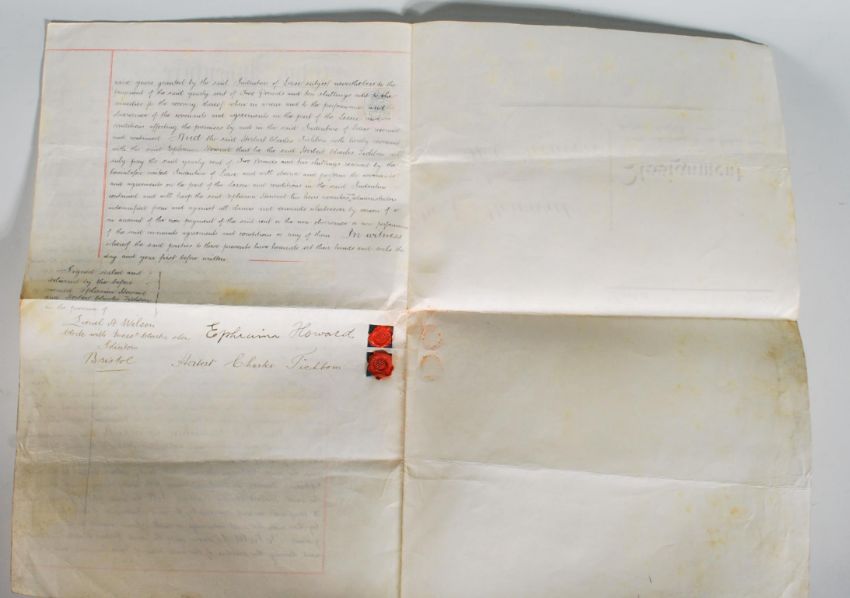 years granted by the said Indenture of Lease subject nevertheless to the
payment of the said yearly rent of Two Pounds and ten shillings and to the
and to the performance and
observance of the covenants and agreements on the part of the Lessee and
conditions affecting the premises by and in the said Indenture of Lease reserved
and contained And the said Herbert Charles Tichbon doth hereby covenant
with the said Ephraim Howard that he the said Herbert Charles Tichbon
duly pay the said yearly rent of Two Pounds and ten shillings reserved by the
Indenture of Lease and will observe and perform the covenants
and agreements on the part of the Lessee and conditions in the said Indenture
contained and will keep the said Ephraim Howard his heirs
indemnified from and against all claims and demands whatsoever by reason of or
on account of the non payment of the said rent or the non observance or non performance
of the said covenants agreements and conditions or any of them In witness
whereof the said parties to these presents have hereunto set their hands and seals the
day and year first before written
Signed sealed and
delivered by the before
named Ephraim Howard
and Herbert Charles Tichbon
in the presence of
Lionel A Welsen
Clerk with
Bristol
Ephraim Howard
Herbert Charles Tichbon